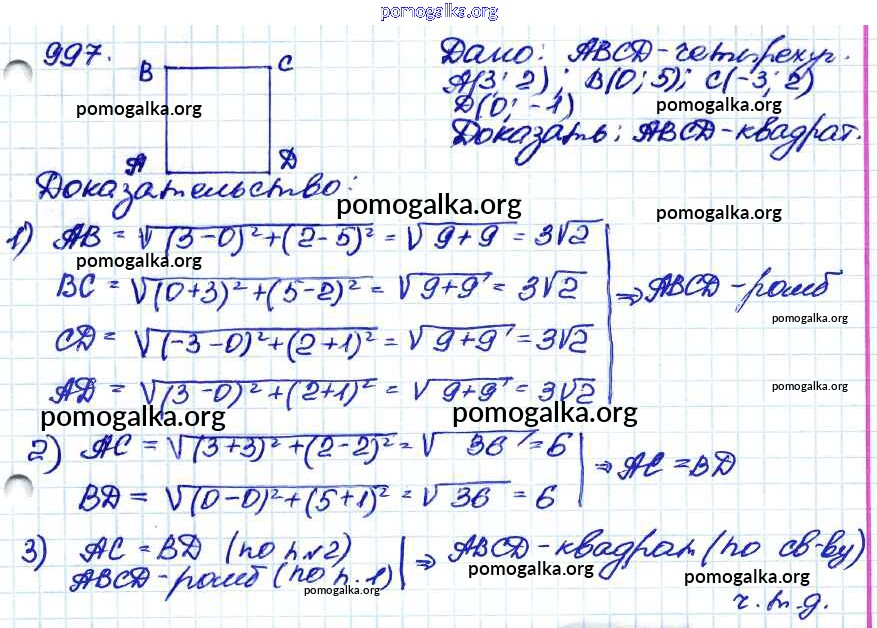 pomogalka.org
997.
B C
A D
Дано: ABCD-четырехуг.
A(3; 2); B(0; 5); C(-3; 2)
D(0; -1)
pomogalka.org pomogalka.org
Доказать: ABCD-квадрат.
Доказательство:
pomogalka.org pomogalka.org
1) AB = √(3-0)²+(2-5)² = √9+9 = 3√2
pomogalka.org
BC = √(0+3)²+(5-2)² = √9+9 = 3√2 ⇒ ABCD-ромб
pomogalka.org
CD = √(-3-0)²+(2+1)² = √9+9 = 3√2
AD = √(3-0)²+(2+1)² = √9+9 = 3√2
pomogalka.org
pomogalka.org pomogalka.org
2) AC = √(3+3)²+(2-2)² = √36 = 6 ⇒ AC = BD
BD = √(0-0)²+(5+1)² = √36 = 6
3) AC = BD (по п.2) ⇒ ABCD-квадрат (по св-ву)
ABCD-ромб (по п.1)
pomogalka.org pomogalka.org pomogalka.org
ч.т.д.